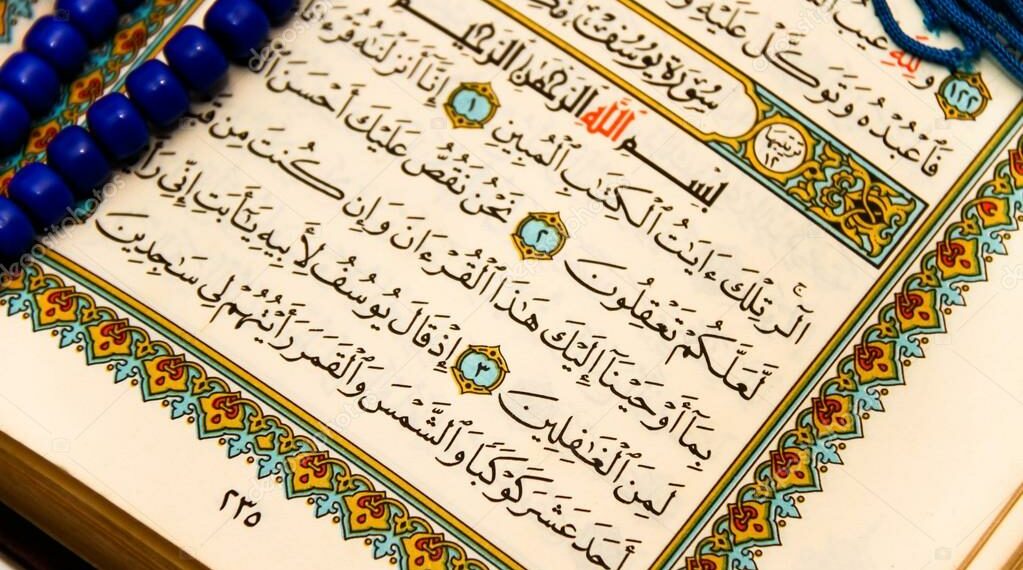 وَ لِلَّهِ غَيْبُ
فَٱعْبُدْهُ وَتَوَكَّلْ عَلَيْهِ وَ
١٢٣
سُورَةُ يُوسُفَ
ترتيبها ١٢
بِسْمِ ٱللَّهِ ٱلرَّحْمَٰنِ ٱلرَّحِيمِ
الٓر تِلْكَ ءَايَٰتُ ٱلْكِتَٰبِ ٱلْمُبِينِ ١ إِنَّآ أَنزَلْنَٰهُ
لَّعَلَّكُمْ تَعْقِلُونَ ٢ نَحْنُ نَقُصُّ عَلَيْكَ أَحْسَنَ
بِمَآ أَوْحَيْنَآ إِلَيْكَ هَٰذَا ٱلْقُرْءَانَ وَإِن كُنتَ مِن
لَمِنَ ٱلْغَٰفِلِينَ ٣ إِذْ قَالَ يُوسُفُ لِأَبِيهِ يَٰٓأَبَتِ إِنِّى
أَحَدَ عَشَرَ كَوْكَبًا وَٱلشَّمْسَ وَٱلْقَمَرَ رَأَيْتُهُمْ لِى سَٰجِدِينَ
٢٣٥